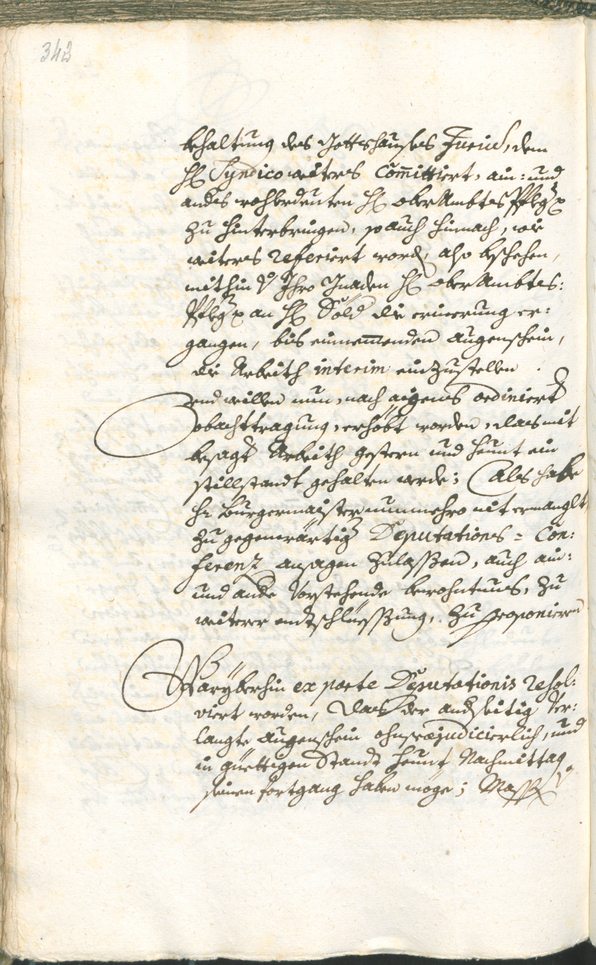 348
behaltung des Gottshauses Jurium, dem
H: Syndico weiters Committiert, ain: und
anders wohlbedeuten H: oberAmbts Pfleg:
zu hinterbringen, so auch hirnach, wie
weiters referiert word, also beschehen,
mithin Ihro Gnaden H: oberAmbts:
Pfleg: an H: Döld die erinerung er:
gangen, bis einnemmenden augenschein,
die Arbeith interim einzustellen.
und willen nun, nach aigens ordiniert
obachttragung, erhöbt worden, das mit
besagt Arbeith gestern und heunt ein
stillstandt gehalten werde; Als habe
H: Burgermaister nunmehro nit ermanglt
zu gegenwärtig Deputations=Con:
ferenz ansagen zulassen, auch ain:
und andre Vorstehende bewohntnus, zu
weiterer entschliessung, zu proponieren
Waryberhin ex parte Deputationis resol:
viert worden, Das der andseitig Ver:
langte augenschein ohnpraejudicierlich, und
in güettigen Standt heunt Nachmittag
seinen fortgang haben möge; Mass